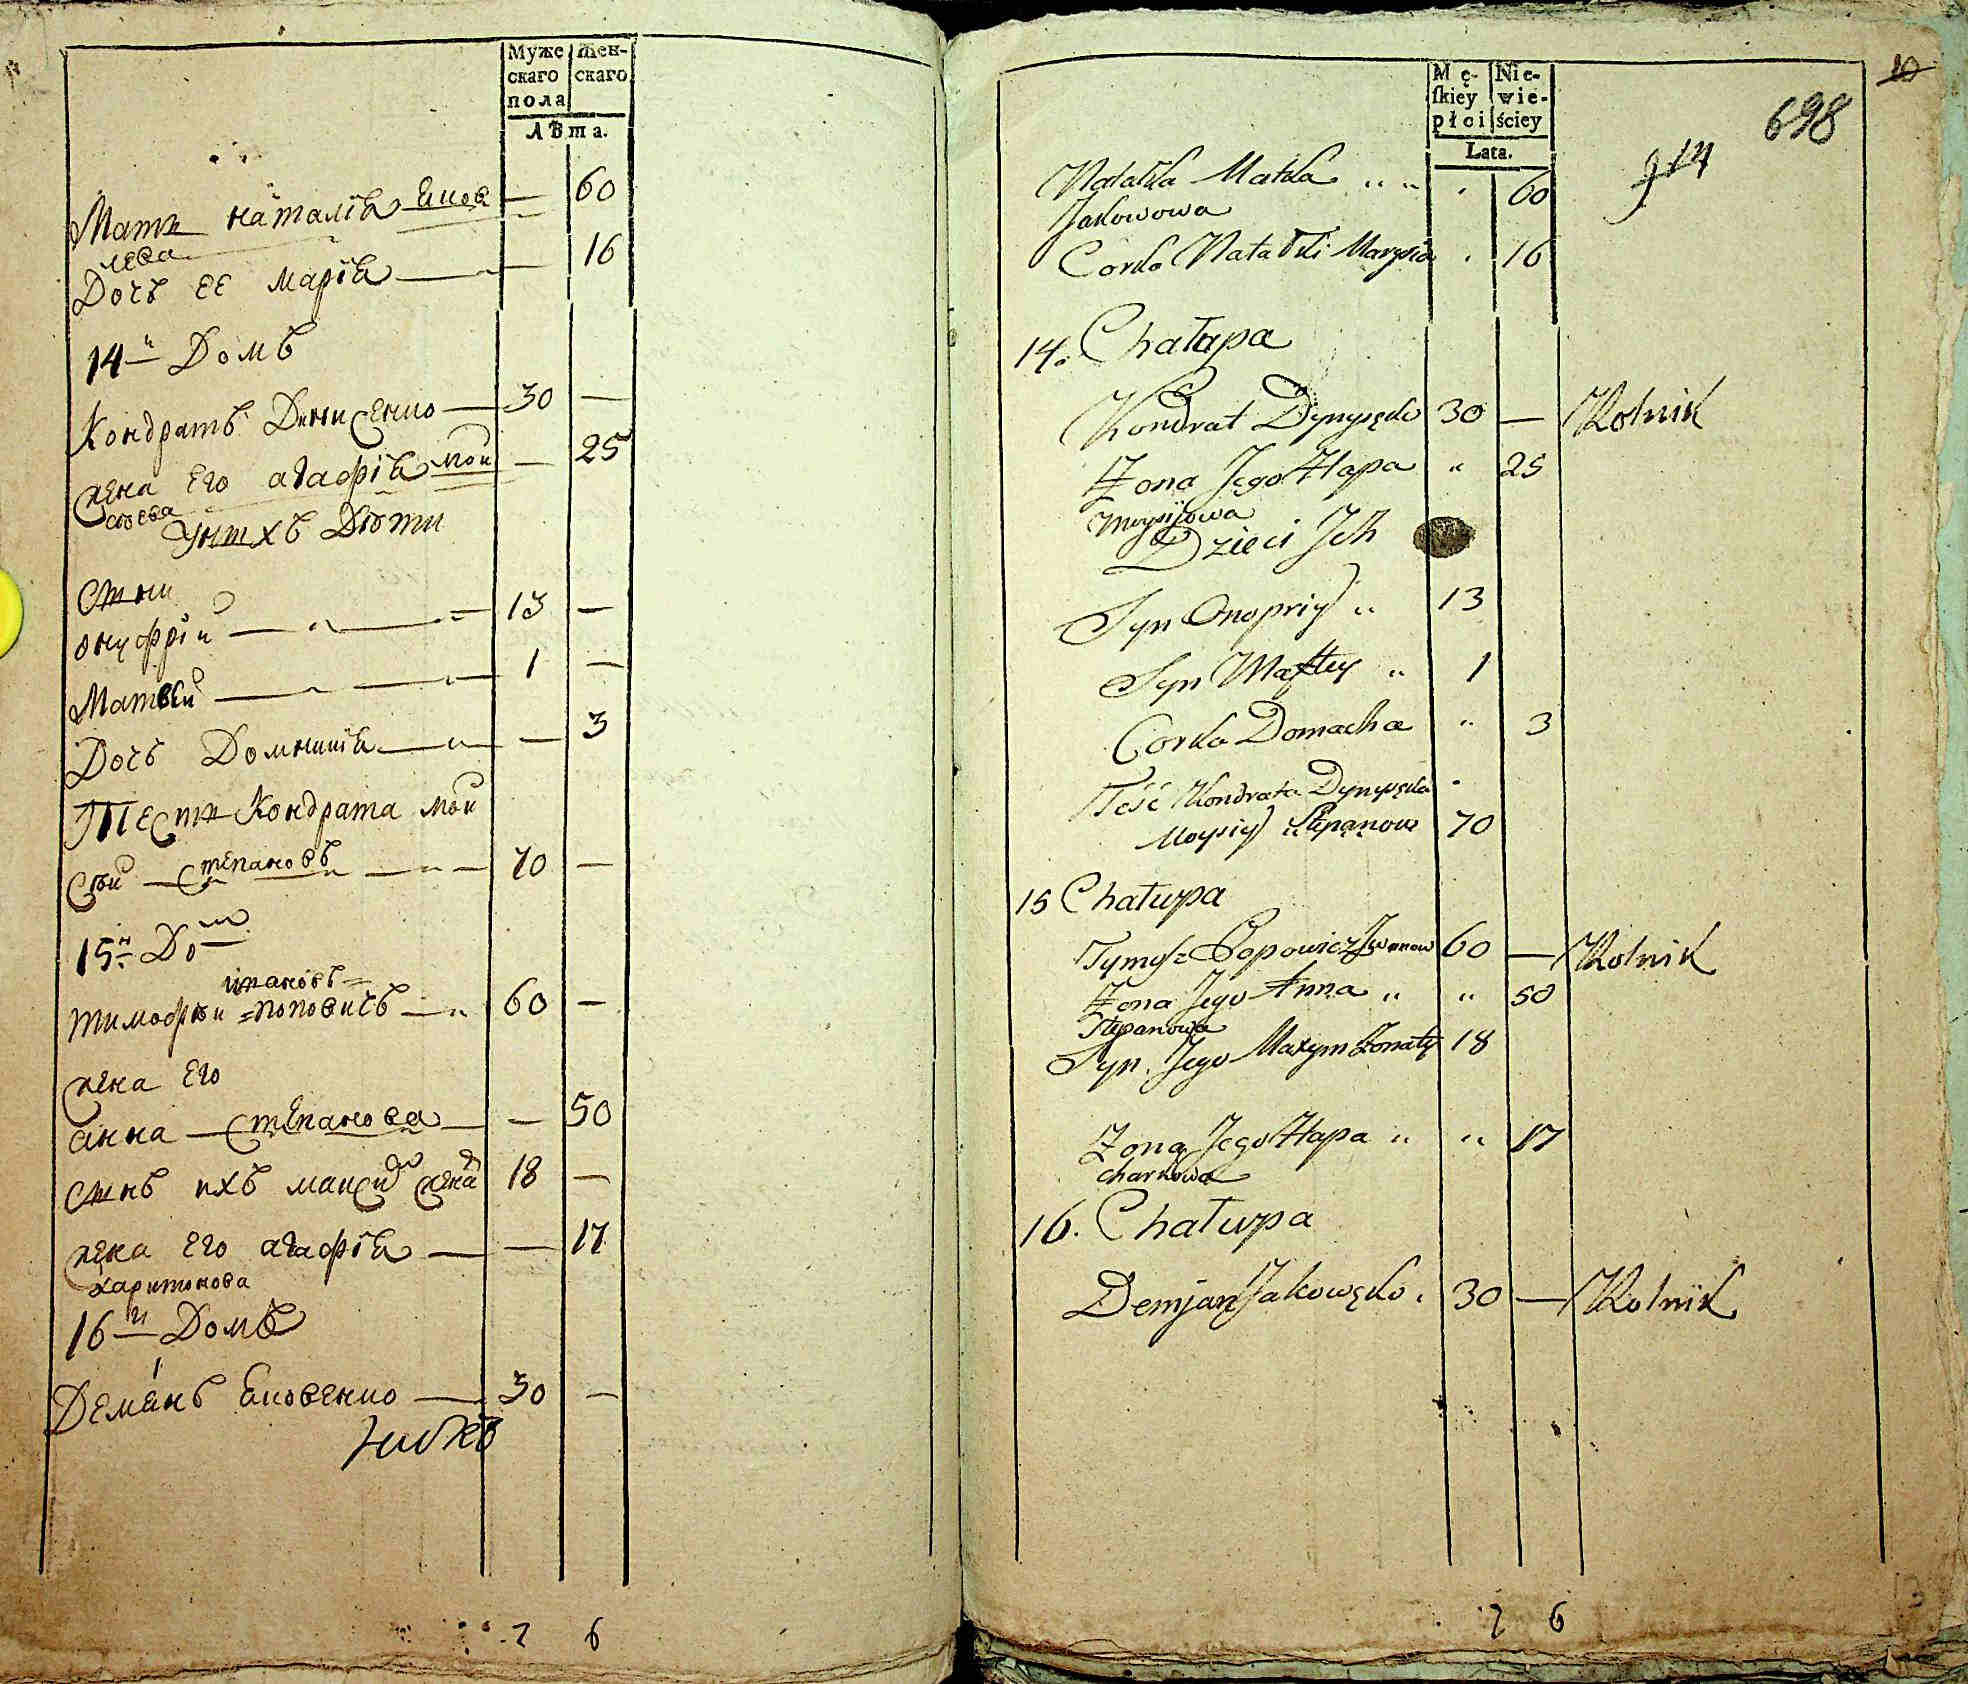 Муже
скаго
пола
Жен-
скаго
Лѣта.
Мать наталія Яков — 60
лева
Дочь ее марія — 16
14й Домъ
Кондратъ Денисенко — 30 —
жена его агафія мой — 25
сѣева
У нихъ Дѣти
сыни
онуфрій — 13 —
Матвѣй — 1 —
Дочь Домникія — — 3
Тесть Кондрата мой
сѣй — степановъ — 70 —
15й До
ивановъ
тимофѣй поповичъ — 60 —
жена его
анна — степанова — — 50
сынъ ихъ максим жена 18 —
жена его агафія — — 17
харитонова
16й Домъ
Демянъ Яковенко — 30 —
7 6
Mę-
skiey
płci
Nie-
wie-
ściey
Lata.
10
698
Natalka Matka „ „ 60
Jakowowa
Corka Natalki Marysia 16
14. Chałupa
Kondrat Dynysęko 30 — Rolnik
Żona Jego Hapa „ 25
Moysijowa
Dzieci Jch
Syn Onopriy „ 13
Syn Matfey „ 1
Corka Domacha „ 3
Teść Kondrata Dynysęka
Moysiy Stepanow 70
15 Chałupa
Tymysz Popowicz Jwanow 60 — Rolnik
Żona Jego Anna „ „ 50
Stepanowa
Syn Jego Maxym Żonaty 18
Żona Jego Hapa „ „ 17
16. Chałupa
Demjan Jakowęko. 30 — Rolnik
7 6